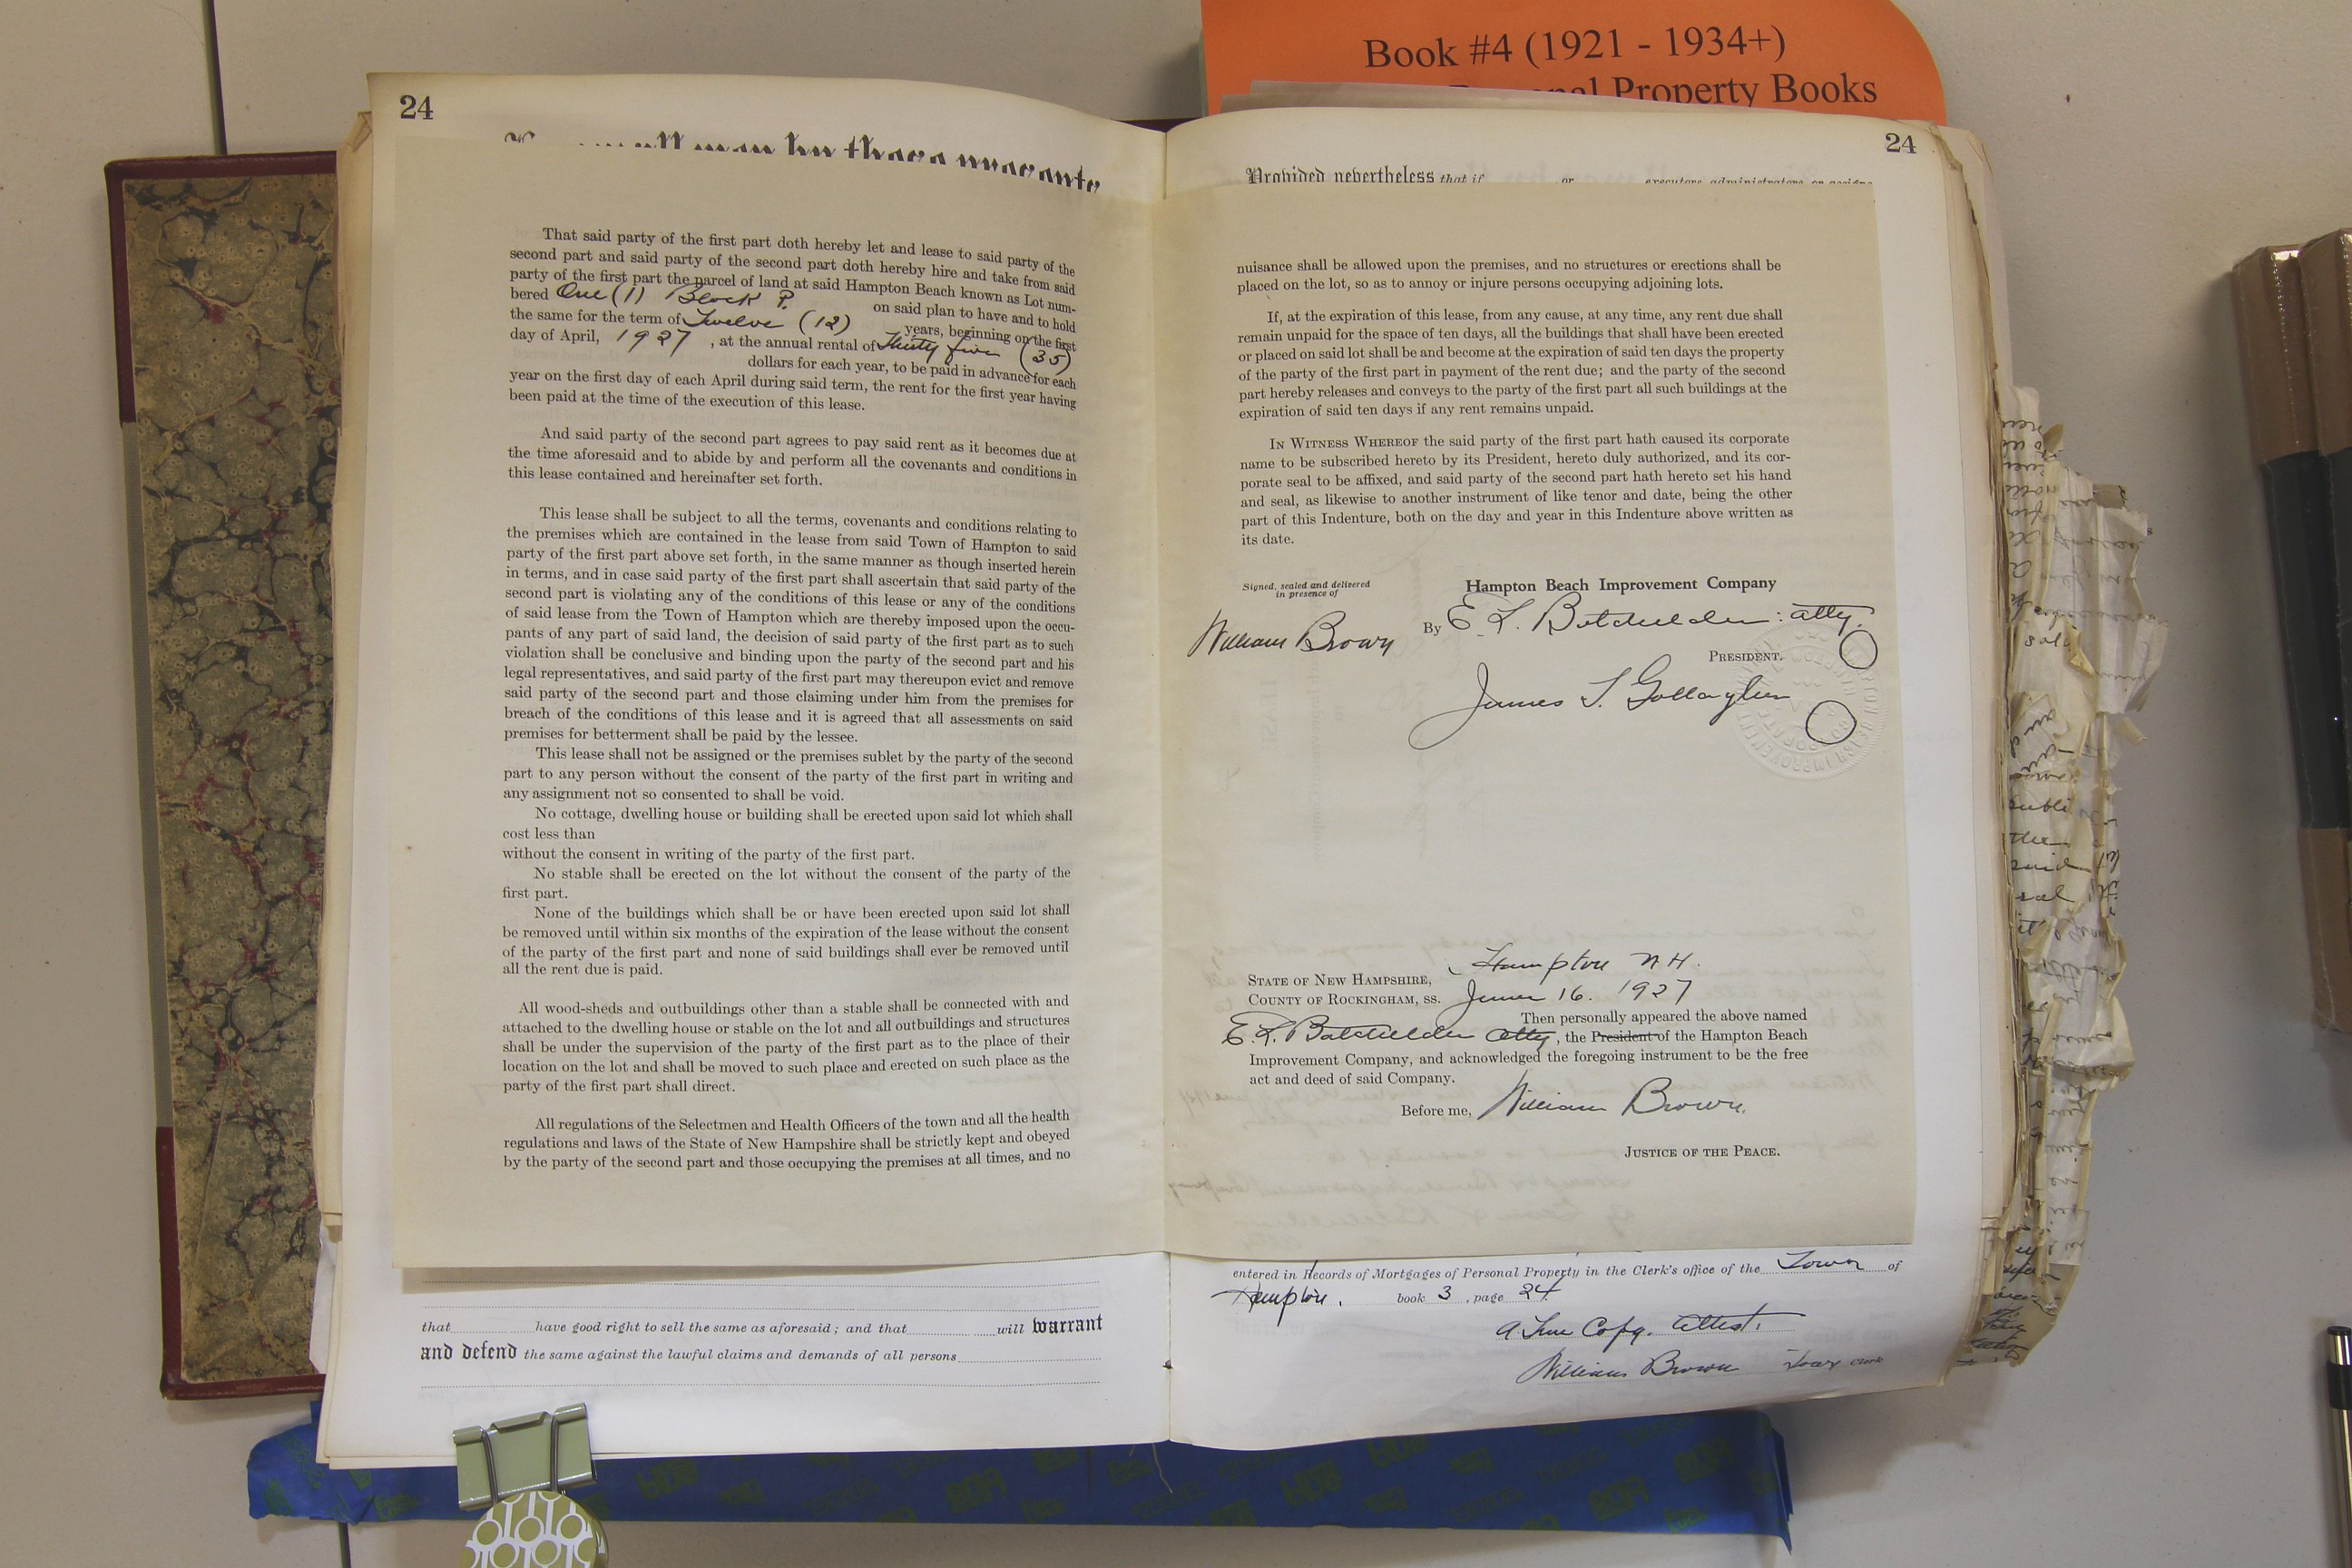 Book #4 (1921 - 1934+)
Personal Property Books
24
Know all men by these presents
That said party of the first part doth hereby let and lease to said party of the
second part and said party of the second part doth hereby hire and take from said
party of the first part the parcel of land at said Hampton Beach known as Lot num-
bered One (1) Block P. on said plan to have and to hold
the same for the term of Twelve (12) years, beginning on the first
day of April, 1927, at the annual rental of Thirty five (35)
dollars for each year, to be paid in advance for each
year on the first day of each April during said term, the rent for the first year having
been paid at the time of the execution of this lease.
And said party of the second part agrees to pay said rent as it becomes due at
the time aforesaid and to abide by and perform all the covenants and conditions in
this lease contained and hereinafter set forth.
This lease shall be subject to all the terms, covenants and conditions relating to
the premises which are contained in the lease from said Town of Hampton to said
party of the first part above set forth, in the same manner as though inserted herein
in terms, and in case said party of the first part shall ascertain that said party of the
second part is violating any of the conditions of this lease or any of the conditions
of said lease from the Town of Hampton which are thereby imposed upon the occu-
pants of any part of said land, the decision of said party of the first part as to such
violation shall be conclusive and binding upon the party of the second part and his
legal representatives, and said party of the first part may thereupon evict and remove
said party of the second part and those claiming under him from the premises for
breach of the conditions of this lease and it is agreed that all assessments on said
premises for betterment shall be paid by the lessee.
This lease shall not be assigned or the premises sublet by the party of the second
part to any person without the consent of the party of the first part in writing and
any assignment not so consented to shall be void.
No cottage, dwelling house or building shall be erected upon said lot which shall
cost less than
without the consent in writing of the party of the first part.
No stable shall be erected on the lot without the consent of the party of the
first part.
None of the buildings which shall be or have been erected upon said lot shall
be removed until within six months of the expiration of the lease without the consent
of the party of the first part and none of said buildings shall ever be removed until
all the rent due is paid.
All wood-sheds and outbuildings other than a stable shall be connected with and
attached to the dwelling house or stable on the lot and all outbuildings and structures
shall be under the supervision of the party of the first part as to the place of their
location on the lot and shall be moved to such place and erected on such place as the
party of the first part shall direct.
All regulations of the Selectmen and Health Officers of the town and all the health
regulations and laws of the State of New Hampshire shall be strictly kept and obeyed
by the party of the second part and those occupying the premises at all times, and no
that have good right to sell the same as aforesaid; and that will warrant
and defend the same against the lawful claims and demands of all persons
24
Provided nevertheless that if or executors administrators or assigns
nuisance shall be allowed upon the premises, and no structures or erections shall be
placed on the lot, so as to annoy or injure persons occupying adjoining lots.
If, at the expiration of this lease, from any cause, at any time, any rent due shall
remain unpaid for the space of ten days, all the buildings that shall have been erected
or placed on said lot shall be and become at the expiration of said ten days the property
of the party of the first part in payment of the rent due; and the party of the second
part hereby releases and conveys to the party of the first part all such buildings at the
expiration of said ten days if any rent remains unpaid.
In Witness Whereof the said party of the first part hath caused its corporate
name to be subscribed hereto by its President, hereto duly authorized, and its cor-
porate seal to be affixed, and said party of the second part hath hereto set his hand
and seal, as likewise to another instrument of like tenor and date, being the other
part of this Indenture, both on the day and year in this Indenture above written as
its date.
Signed, sealed and delivered
in presence of
Hampton Beach Improvement Company
William Brown By E. L. Batchelder: atty.
President.
James T. Gallagher
Hampton N.H.
State of New Hampshire,
County of Rockingham, ss. June 16. 1927
Then personally appeared the above named
E. L. Batchelder atty, the President of the Hampton Beach
Improvement Company, and acknowledged the foregoing instrument to be the free
act and deed of said Company.
Before me, William Brown.
Justice of the Peace.
entered in Records of Mortgages of Personal Property in the Clerk's office of the Town of
Hampton, book 3, page 24
A True Copy. Attest.
William Brown Town Clerk